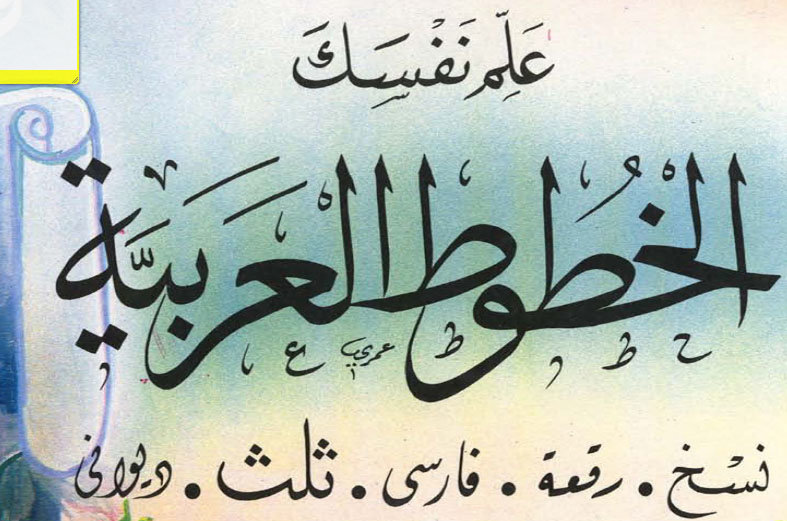 عَلِّم نَفْسَكَ
الخُطُوط العَرَبيَّة
نسْخ . رقعة . فارسى . ثلث . ديوانى